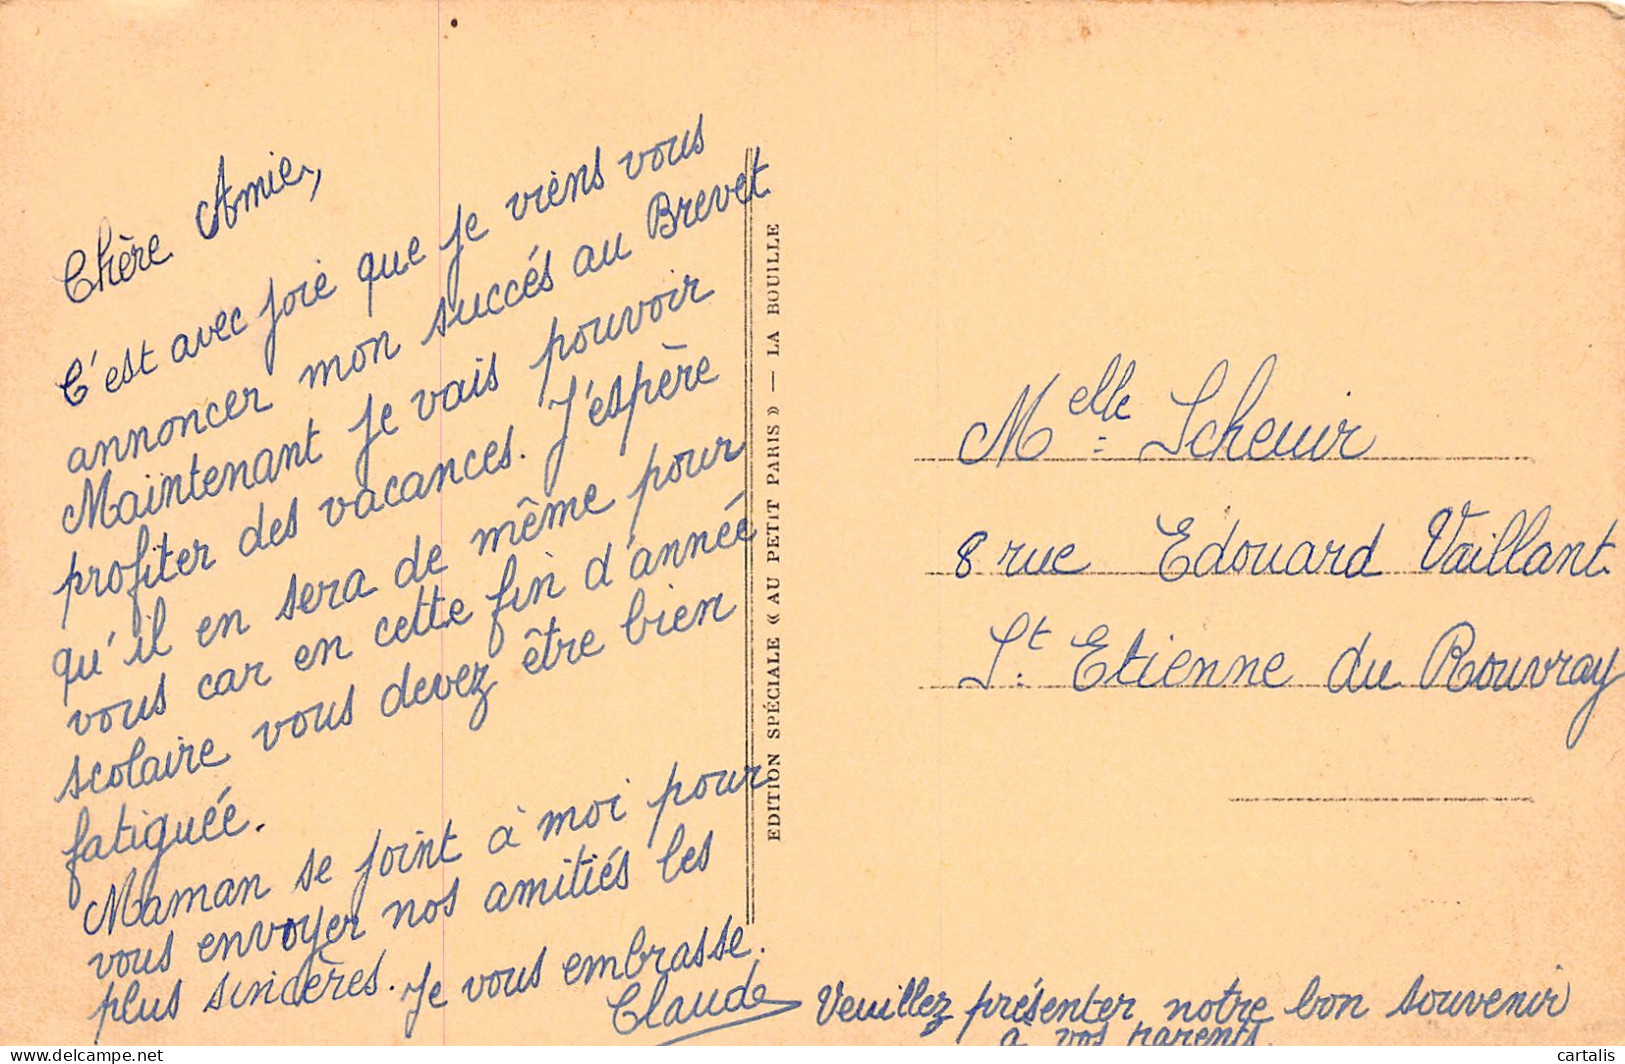 Chère Amie,
C'est avec joie que je viens vous
annoncer mon succés au Brevet.
Maintenant je vais pouvoir
profiter des vacances. J'espère
qu'il en sera de même pour
vous car en cette fin d'année
scolaire vous devez être bien
fatiguée.
Maman se joint à moi pour
vous envoyer nos amitiés les
plus sincères. Je vous embrasse.
Claude
Veuillez présenter notre bon souvenir
à vos parents.
EDITION SPÉCIALE « AU PETIT PARIS » — LA BOUILLE
Melle Scheuir
8 rue Edouard Vaillant.
St. Etienne du Rouvray
delcampe.net
cartalis